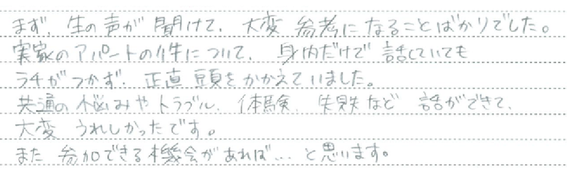 まず、生の声が聞けて、大変参考になることばかりでした。
実家のアパートの件について、身内だけで話していても
ラチがつかず、正直頭をかかえていました。
共通の悩みやトラブル、体験、失敗など話ができて、
大変うれしかったです。
また参加できる機会があれば…と思います。